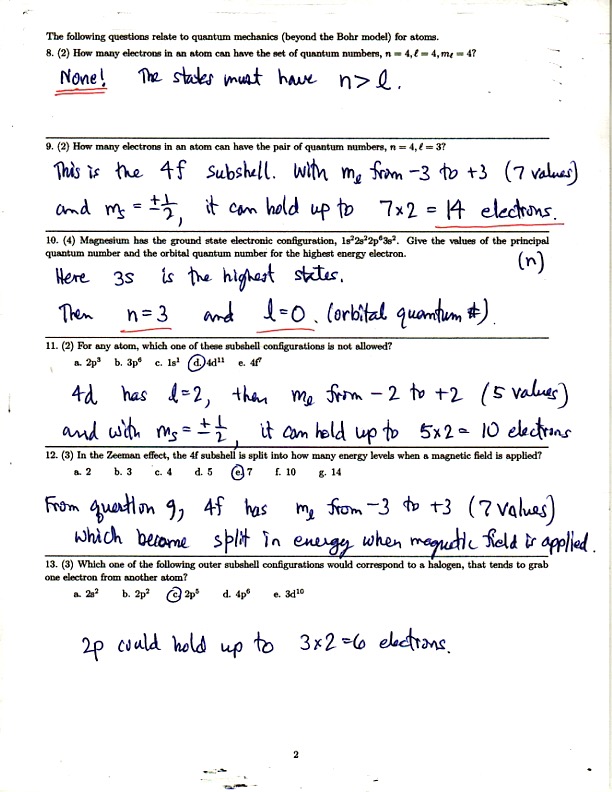 The following questions relate to quantum mechanics (beyond the Bohr model) for atoms.
8. (2) How many electrons in an atom can have the set of quantum numbers, n = 4, ℓ = 4, mℓ = 4?
None! The states must have n > ℓ.
9. (2) How many electrons in an atom can have the pair of quantum numbers, n = 4, ℓ = 3?
This is the 4f subshell. With mℓ from -3 to +3 (7 values)
and ms = ±1/2, it can hold up to 7×2 = 14 electrons.
10. (4) Magnesium has the ground state electronic configuration, 1s²2s²2p⁶3s². Give the values of the principal
quantum number and the orbital quantum number for the highest energy electron.
(n)
Here 3s is the highest states.
Then n=3 and l=0. (orbital quantum #)
11. (2) For any atom, which one of these subshell configurations is not allowed?
a. 2p³ b. 3p⁶ c. 1s¹ d. 4d¹¹ e. 4f⁷
4d has l=2, then mℓ from -2 to +2 (5 values)
and with ms = ±1/2, it can hold up to 5×2 = 10 electrons
12. (3) In the Zeeman effect, the 4f subshell is split into how many energy levels when a magnetic field is applied?
a. 2 b. 3 c. 4 d. 5 e. 7 f. 10 g. 14
From question 9, 4f has mℓ from -3 to +3 (7 values)
which become split in energy when magnetic field is applied.
13. (3) Which one of the following outer subshell configurations would correspond to a halogen, that tends to grab
one electron from another atom?
a. 2s² b. 2p² c. 2p⁵ d. 4p⁶ e. 3d¹⁰
2p could hold up to 3×2=6 electrons.
2